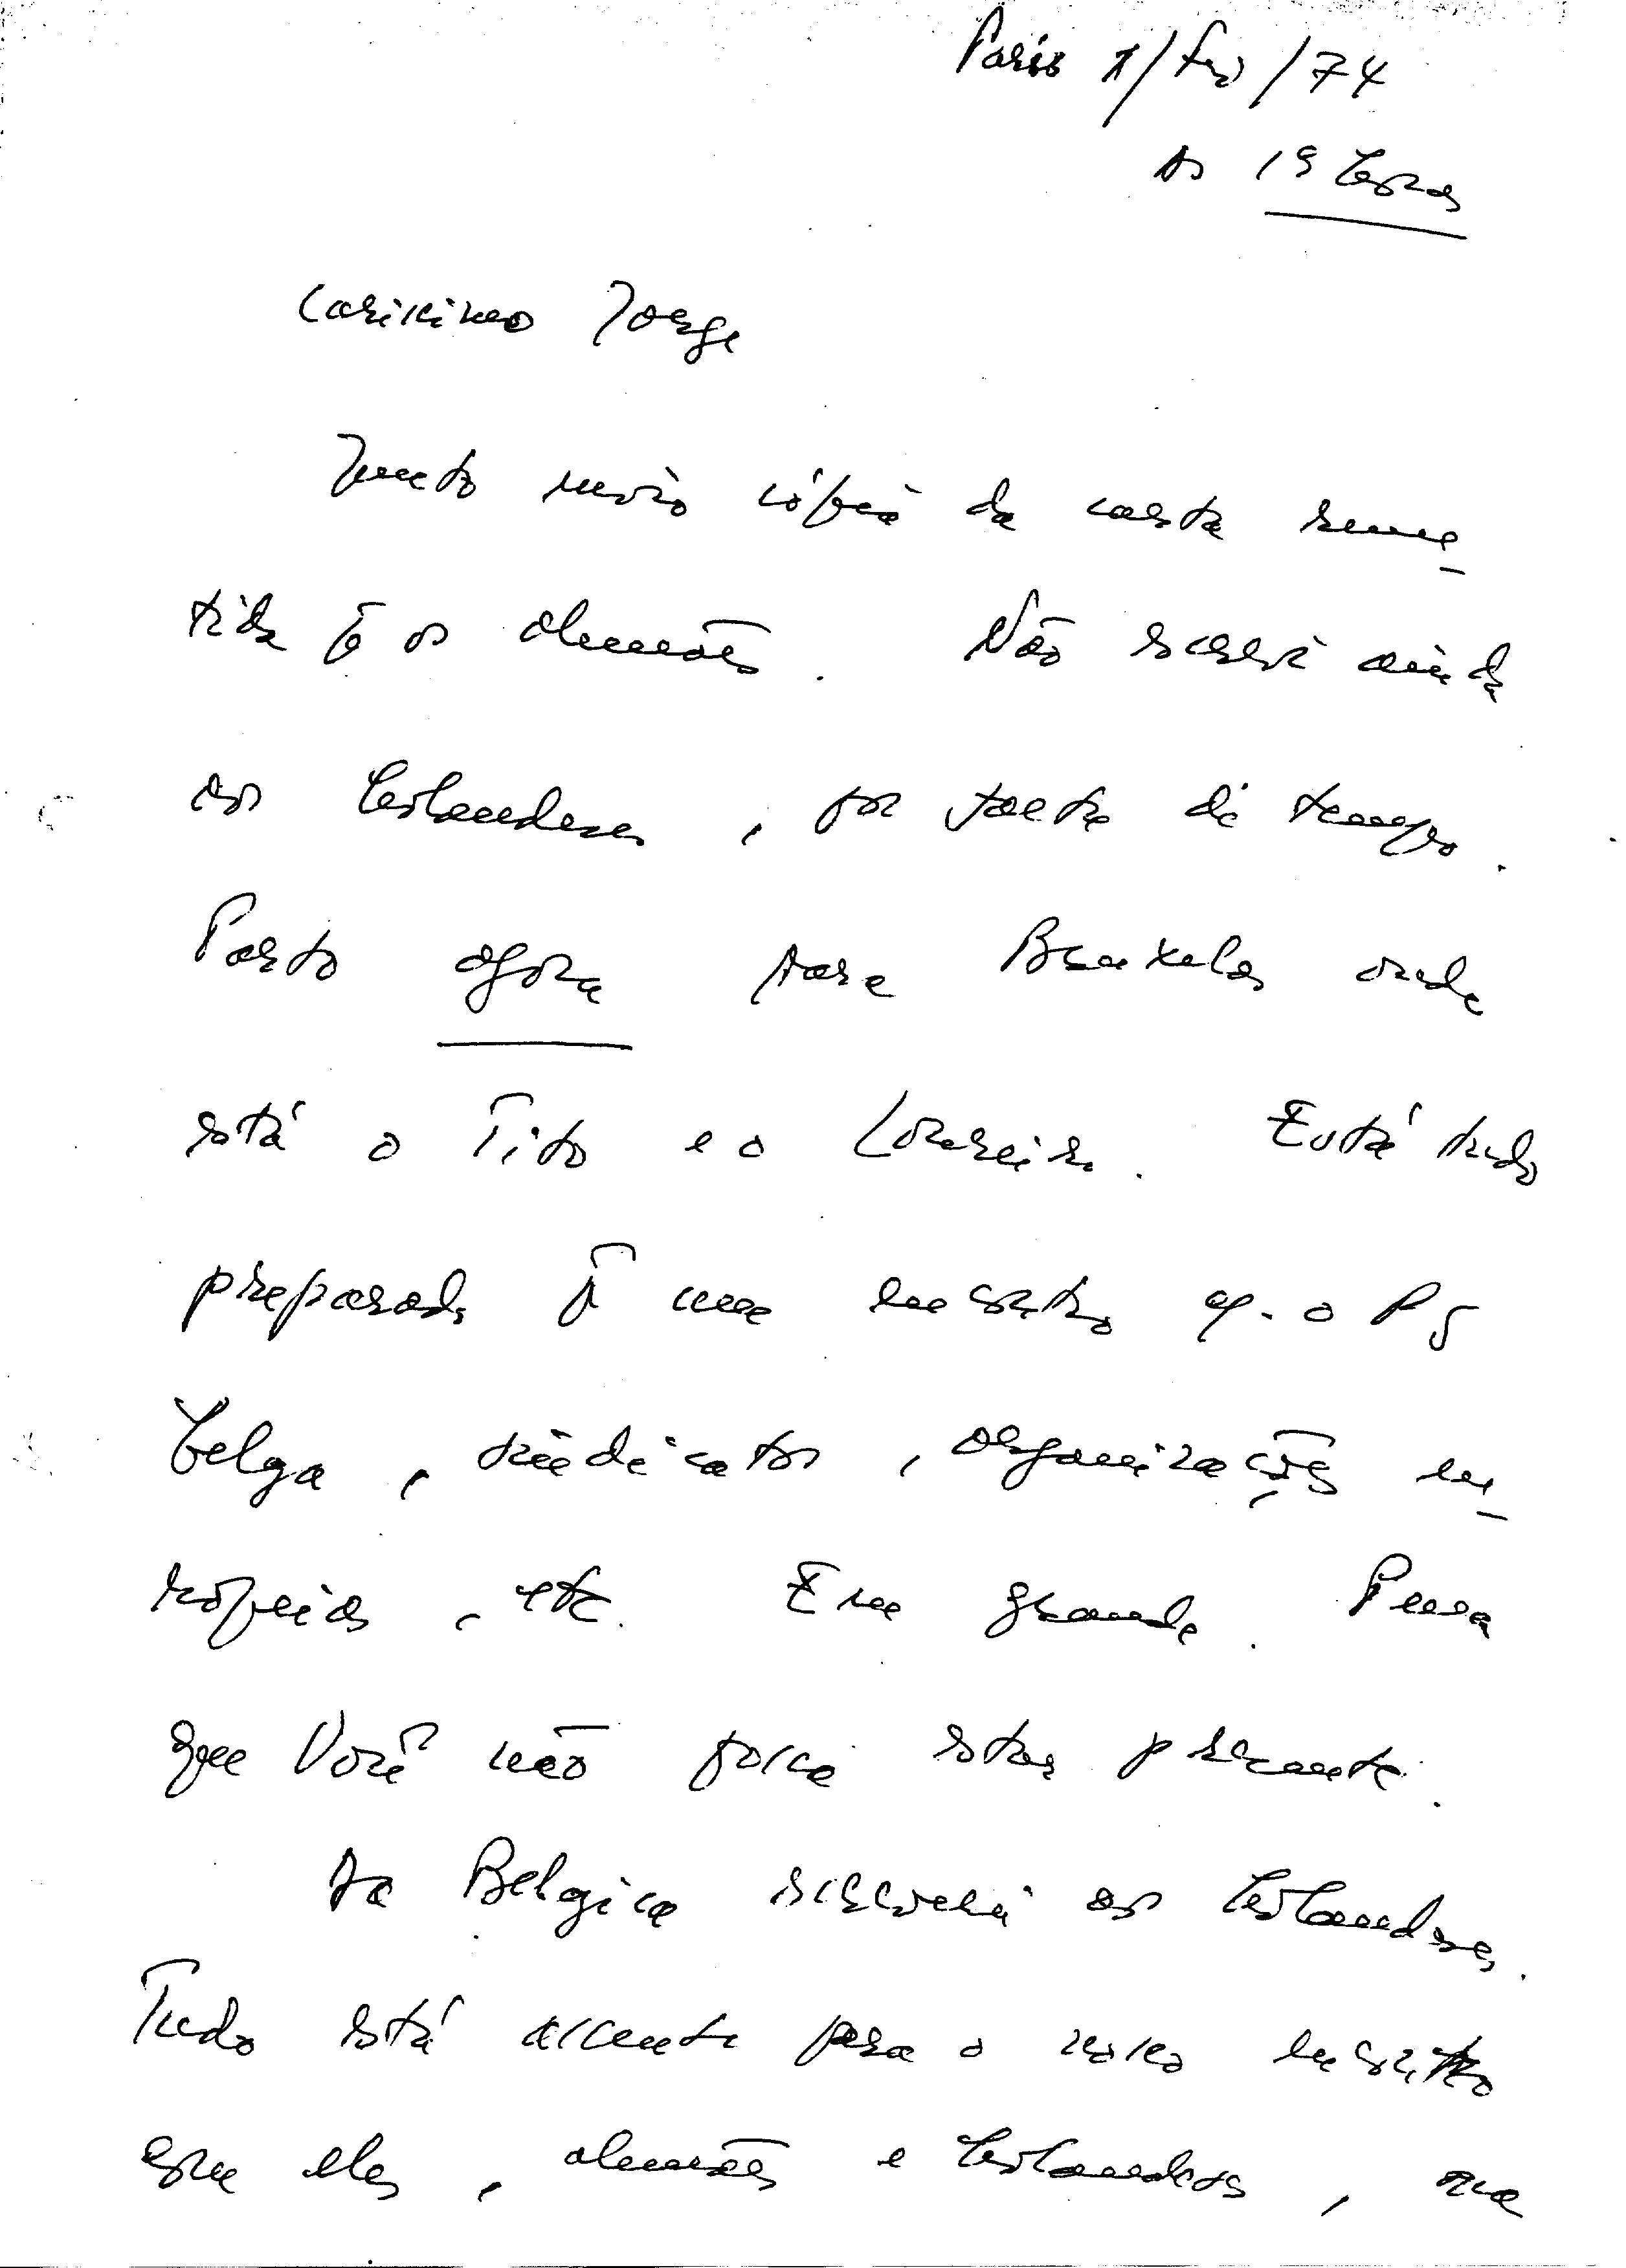 Paris 1/Fev/74
às 19 horas
Caríssimo Jorge
Junto envio cópia da carta reme-
tida p. os alemães. Não escrevi ainda
aos holandeses, por falta de tempo.
Parto agora para Bruxelas onde
está o Tito e o Loureiro. Está tudo
preparado p. um encontro c. o PS
belga, sindicatos, organizações eu-
ropeias, etc. Em grande. Pena
que Você não possa estar presente.
Da Belgica escreverei aos holandeses.
Tudo está assente para o novo encontro
que eles, alemães e holandeses,